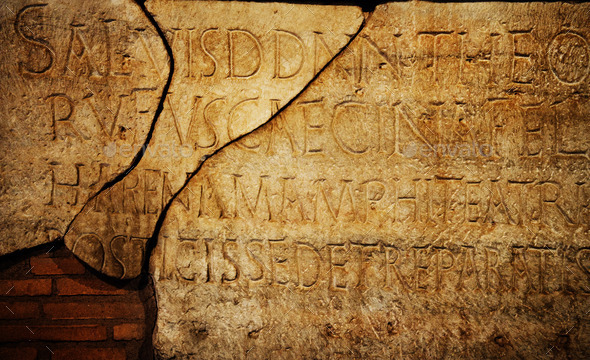 SALVIS DD NN THEO
RVFVS CAECINA FEL
HARENAM AMPHITEATRI
POSTICIS SED ET REPARATIS